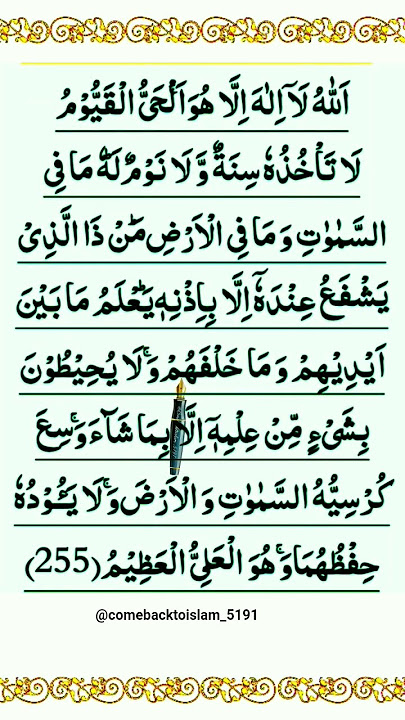 اَللّٰهُ لَاۤ اِلٰهَ اِلَّا هُوَ اَلْحَیُّ الْقَیُّوْمُ
لَا تَاْخُذُهٗ سِنَةٌ وَّ لَا نَوْمٌ لَهٗ مَا فِی
السَّمٰوٰتِ وَ مَا فِی الْاَرْضِ مَنْ ذَا الَّذِیْ
یَشْفَعُ عِنْدَهٗۤ اِلَّا بِاِذْنِهٖ یَعْلَمُ مَا بَیْنَ
اَیْدِیْهِمْ وَ مَا خَلْفَهُمْ وَ لَا یُحِیْطُوْنَ
بِشَیْءٍ مِّنْ عِلْمِهٖۤ اِلَّا بِمَا شَآءَ وَسِعَ
كُرْسِیُّهُ السَّمٰوٰتِ وَ الْاَرْضَ وَ لَا یَـُٔوْدُهٗ
حِفْظُهُمَا وَ هُوَ الْعَلِیُّ الْعَظِیْمُ (255)
@comebacktoislam_5191